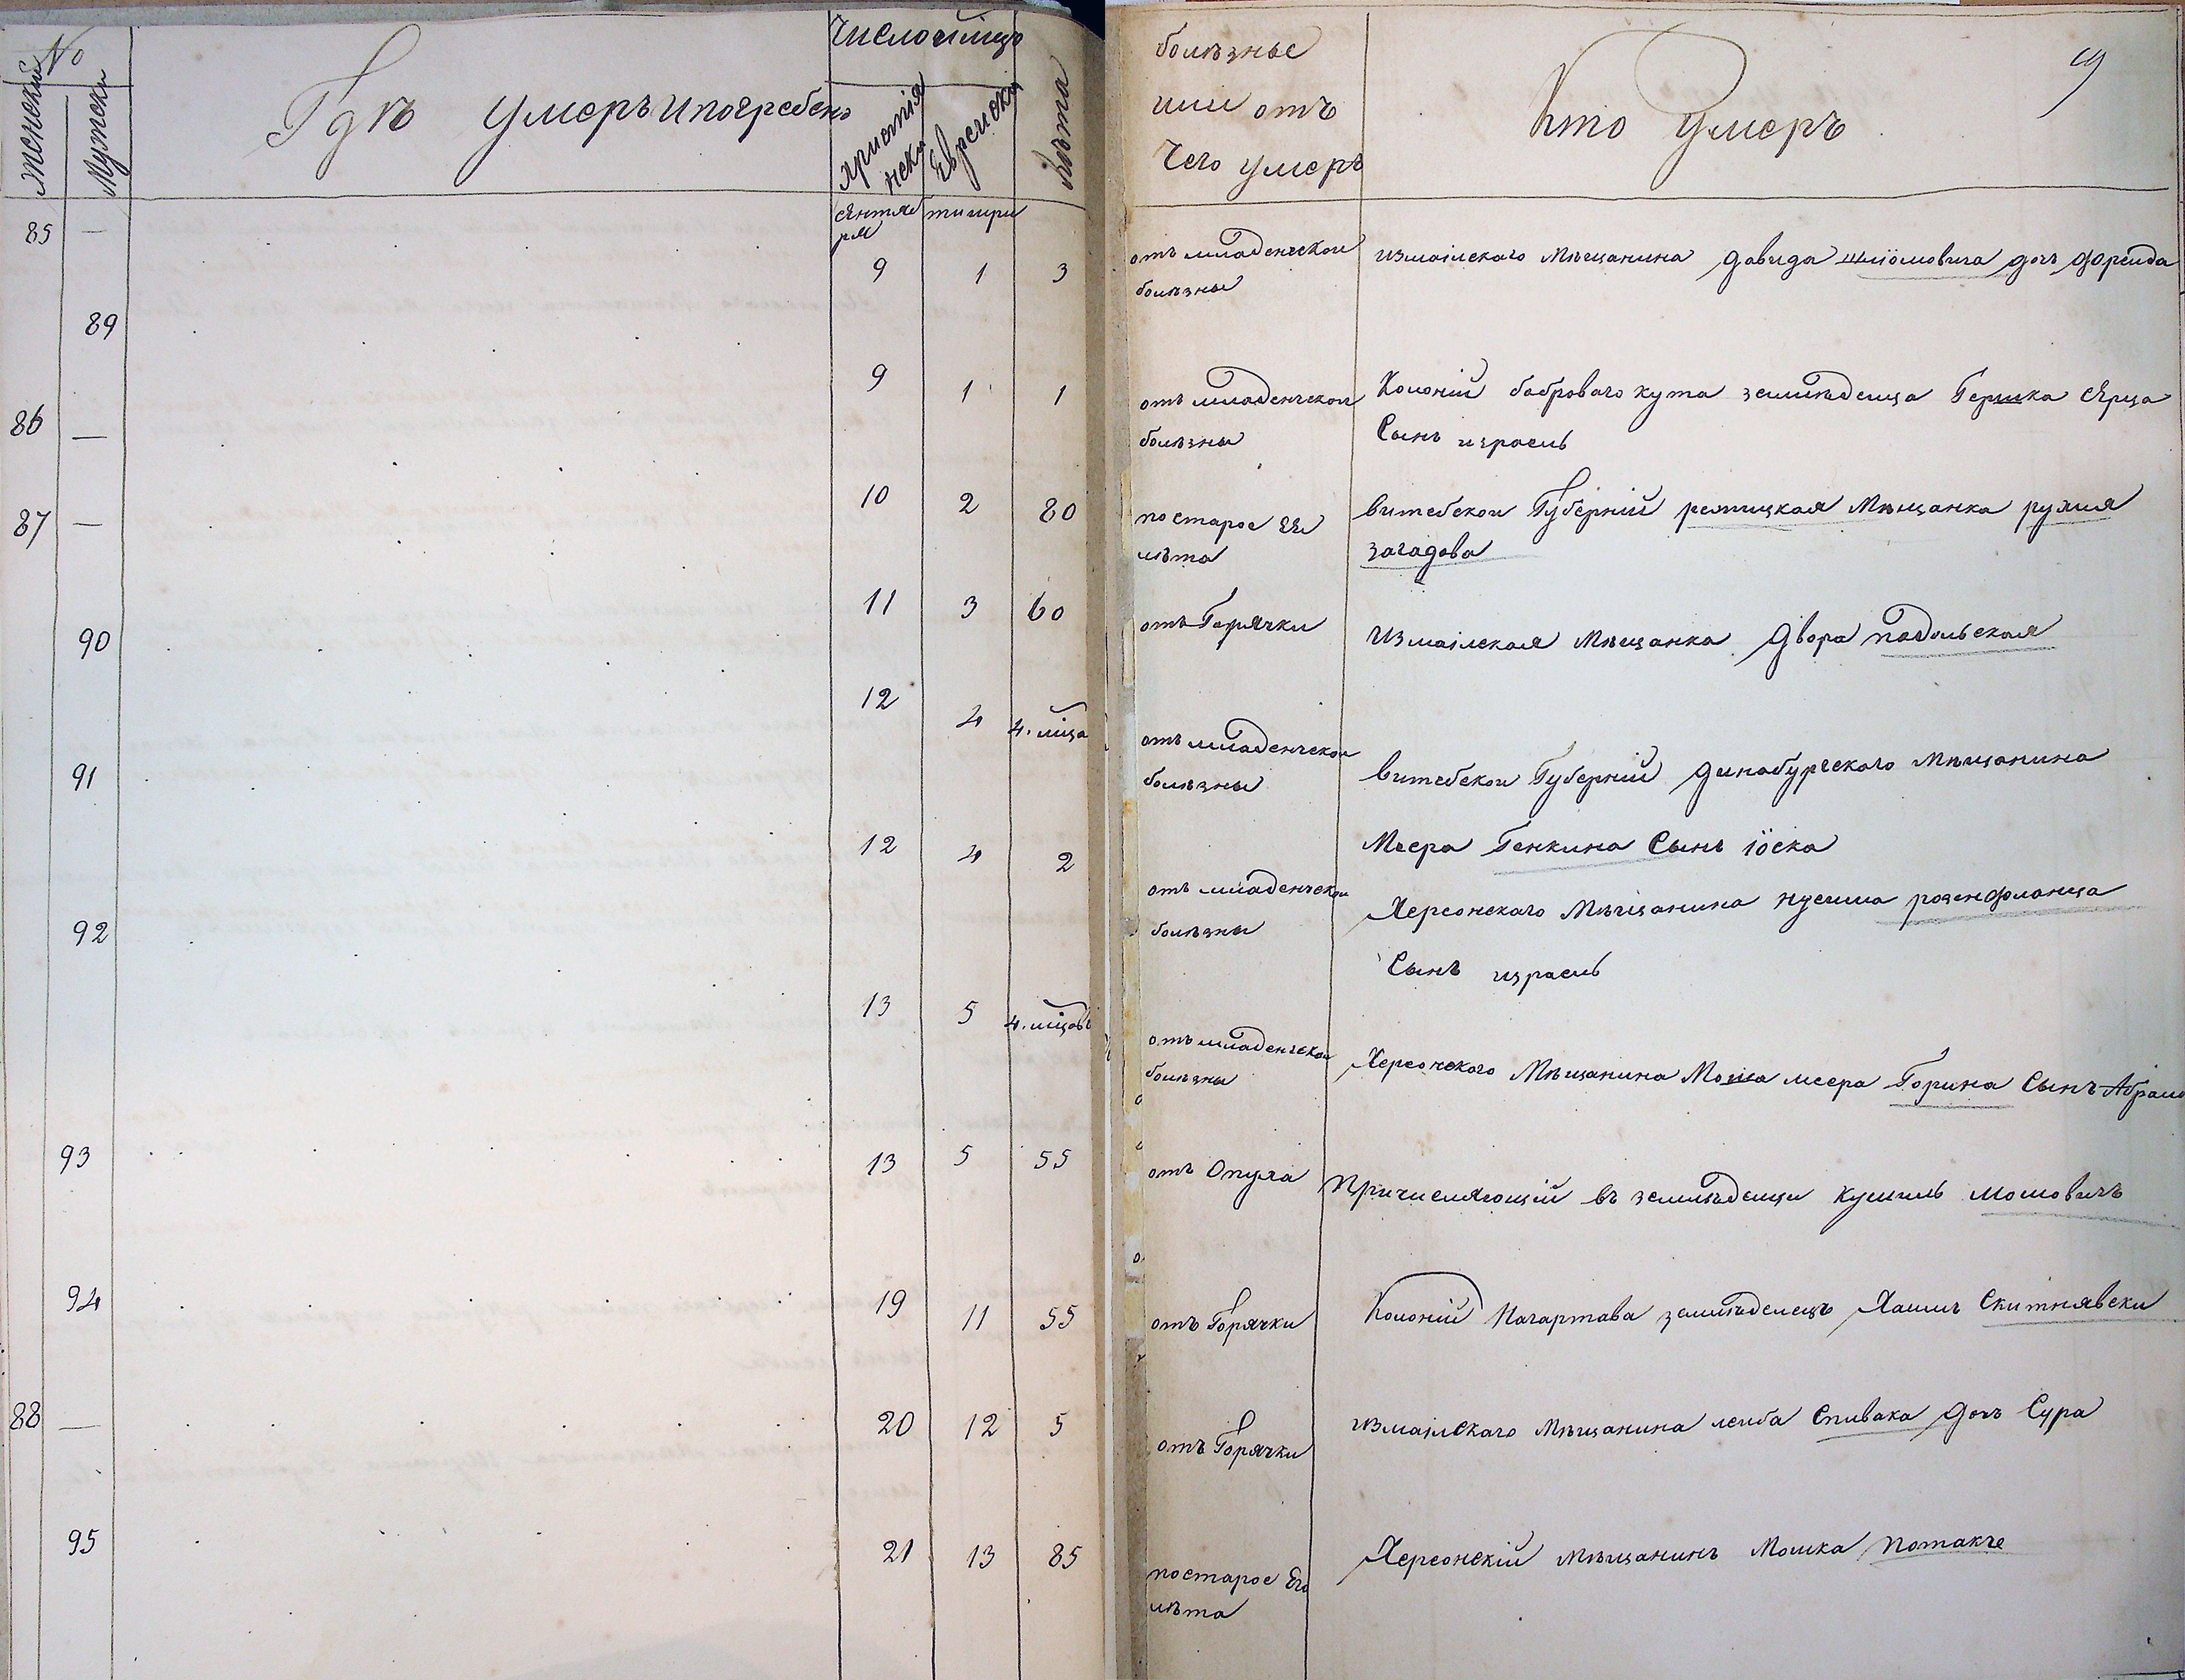 No
женски
Мужески
Гдѣ умеръ и погребенъ
Число и мѣсяцъ
христіянски
Еврейски
Лѣта
болѣзнье
или отъ
Чего умеръ
Кто Умеръ
9
85 — сентября тишри
9 1 3 отъ младенческои болѣзны
измаілскаго Мѣщанина Давида Шліомовича дочь Фреида
89
9 1 1 отъ младенческои болѣзны
Колоній бобровагокута земляѣделца Гершка Ерца
Сынъ израель
86 —
10 2 80 по старое ЕЕ лѣта
витебскои Губерній режицкая Мѣщанка рухля
загадова
87 —
11 3 60 отъ Горячки
Измаілская Мѣщанка Двора подольская
90
12 4 4. мца отъ младенческои болѣзны
витебскои Губерній динабургскаго Мѣщанина
Меера Генкина Сынъ іоска
91
12 4 2 отъ младенческои болѣзны
Херсонскаго Мѣщанина нусима розенфланца
Сынъ израель
92
13 5 4. мцовъ отъ младенческои болѣзны
Херсонского Мѣщанина Мошка меера Горина Сынъ Абрамъ
93
13 5 55 отъ Опуха
Причисляющій въ земляѣделци кушиль мошовичъ
94
19 11 55 отъ Горячки
Колоній Нагартава земляѣделецъ Хаимъ Скитнявски
88 —
20 12 5 отъ Горячки
измаілскаго Мѣщанина леиба Спивака дочь Сура
95
21 13 85 по старое Его лѣта
Херсонскій мѣщанинъ Мошка Потакъ